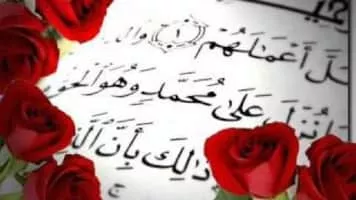 لَّ أَعْمَٰلَهُمْ ﴿١﴾ وَال
مَا نُزِّلَ عَلَىٰ مُحَمَّدٍ وَهُوَ الْحَقُّ
ذَٰلِكَ بِأَنَّ الَّ
ج